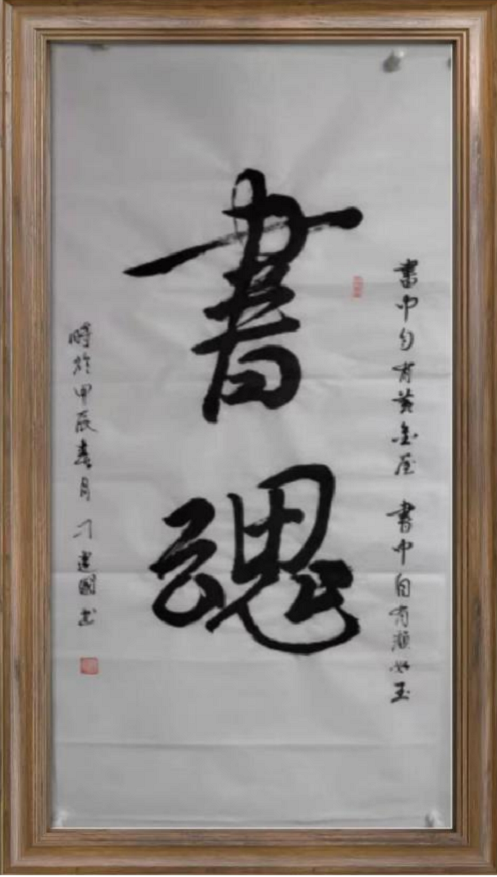 書中自有黃金屋 書中自有顏如玉
書魂
時於甲辰春月 刁建國書